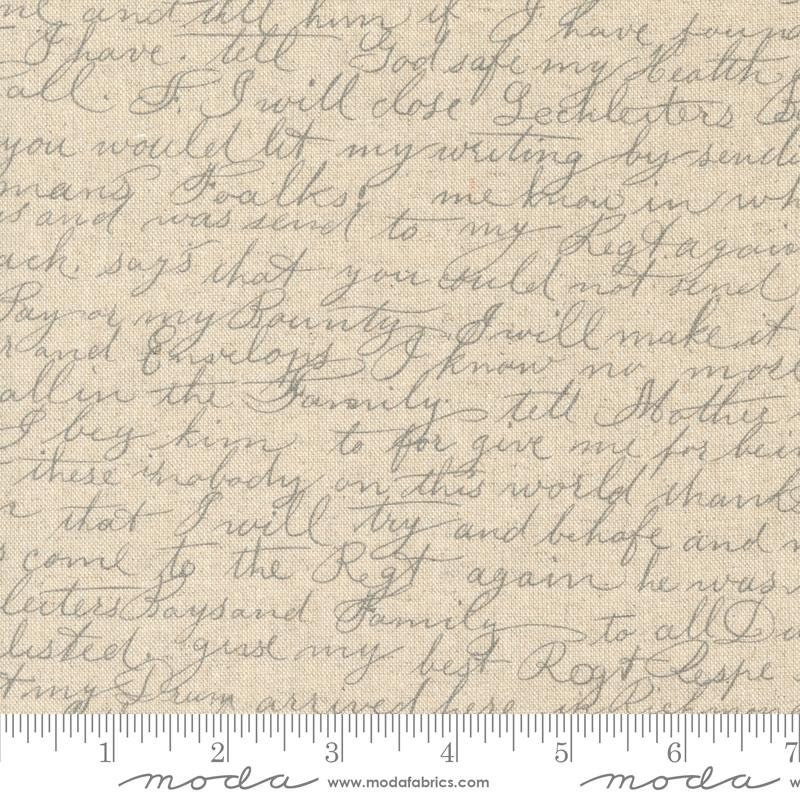 and tell him if I have found
I have. tell God safe my Health
all. F. I will close Lechleiters
you would let my writing by sendi
mans Foalks. me know in wh
is and was send to my Regt. again
ack. says that you could not send
Pay or my Bounty, I will make it
r and Envelops I know no more
all in the Family. tell Mother
I beg him to for give me for bein
these is nobody on this world thank
that I will try and behafe and
come to the Regt again he was
leiters says and Family to all
listed. give my best Regt Respe
t my Drum arrived here in Richmon
1 2 3 4 5 6 7
moda www.modafabrics.com moda w